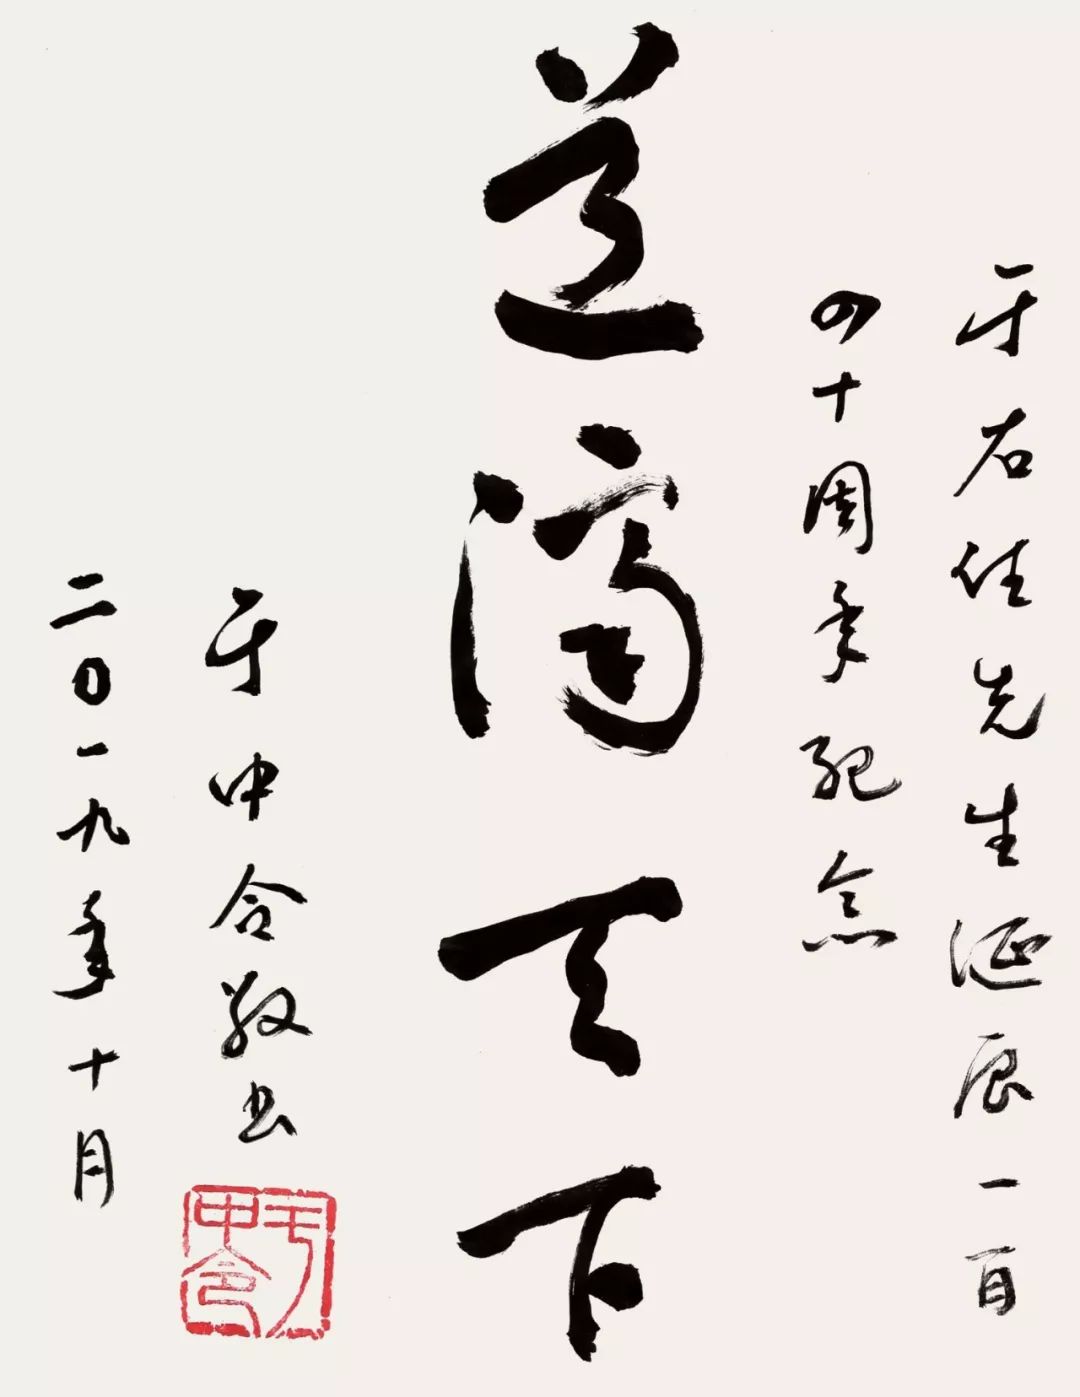 于右任先生诞辰一百
四十周年纪念
道济天下
于中令敬书
二〇一九年十月
于中令